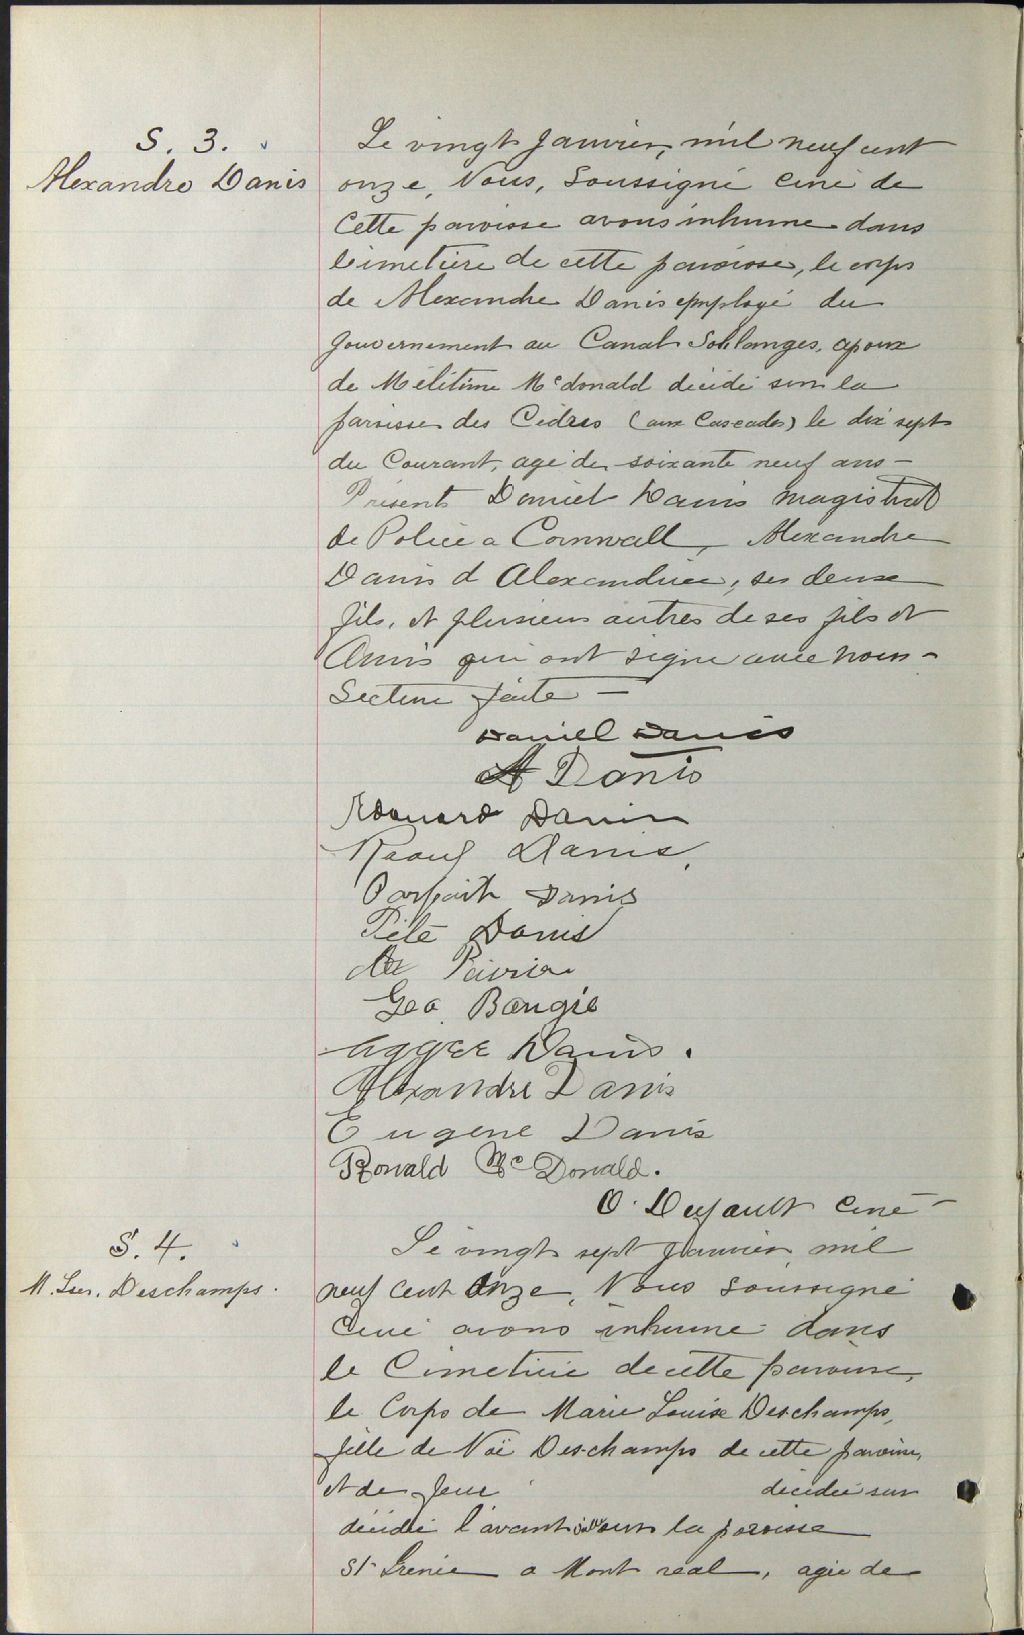 S. 3.
Alexandre Danis
Le vingt Janvier, mil neuf cent
onze, Nous, Soussigné curé de
Cette paroisse avons inhumé dans
le cimetière de cette paroisse, le corps
de Alexandre Danis employé du
Gouvernement au Canal Soulanges, époux
de Mélitime McDonald décédé sur la
paroisse des Cèdres (aux Cascades) le dix sept
du Courant, agé de soixante neuf ans —
Présents Daniel Danis magistrat
de Police a Cornwall, Alexandre
Danis d'Alexandria, ses deux
fils, et plusieurs autres de ses fils et
Amis qui ont signé avec nous —
Lecture faite —
Daniel Danis
A Danis
Edouard Danis
Raoul Danis.
Parfait Danis
Pite Danis
Geo. Bougie
Aggée Danis.
Alexandre Danis
Eugene Danis
Ronald McDonald.
O. Dufault curé —
S. 4.
M. Lse. Deschamps.
Le vingt sept Janvier mil
neuf cent Onze, Nous soussigné
Curé avons inhumé dans
le Cimetière de cette paroisse,
le Corps de Marie Louise Deschamps,
fille de Noé Deschamps de cette paroisse,
et de feue décédée sur
décédée l'avant sur la paroisse
St a Montréal, agée de